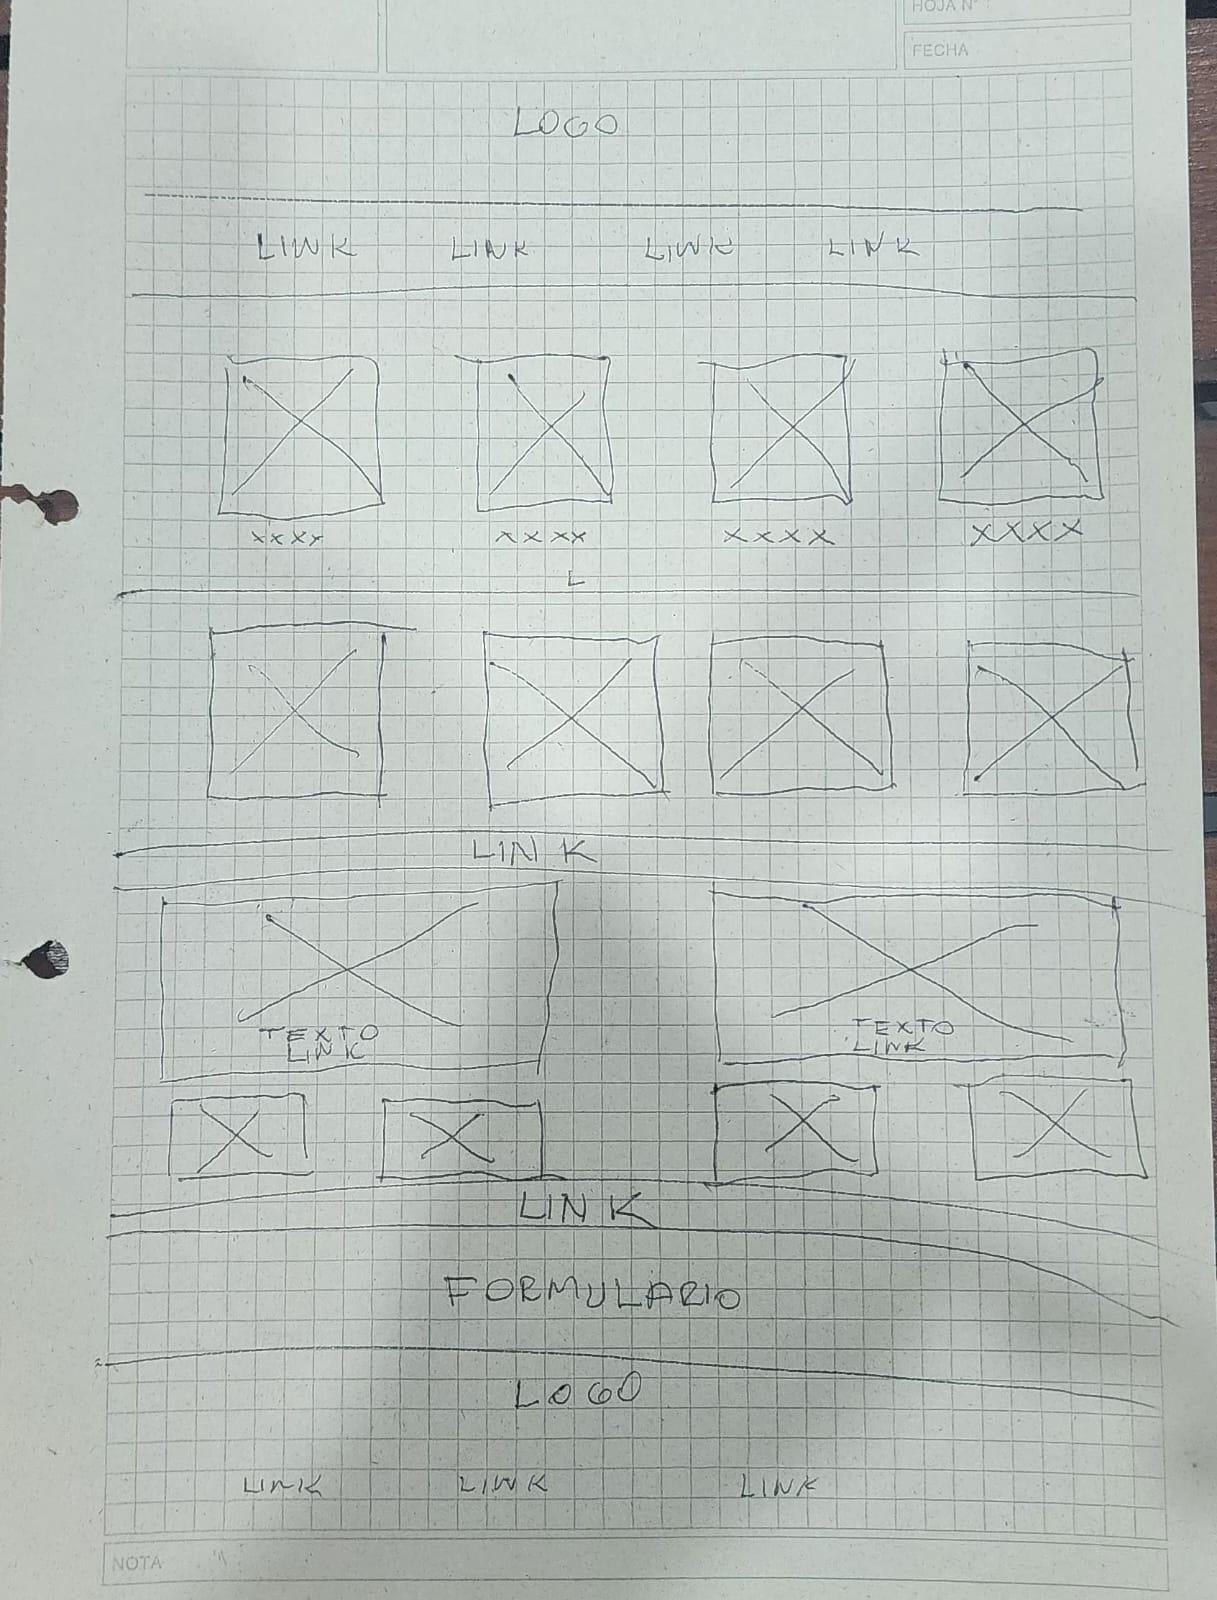 HOJA N°
FECHA
LOGO
LINK LINK LINK LINK
xxxx xxxx xxxx xxxx
L
LINK
TEXTO TEXTO
LINK LINK
LINK
FORMULARIO
LOGO
LINK LINK LINK
NOTA